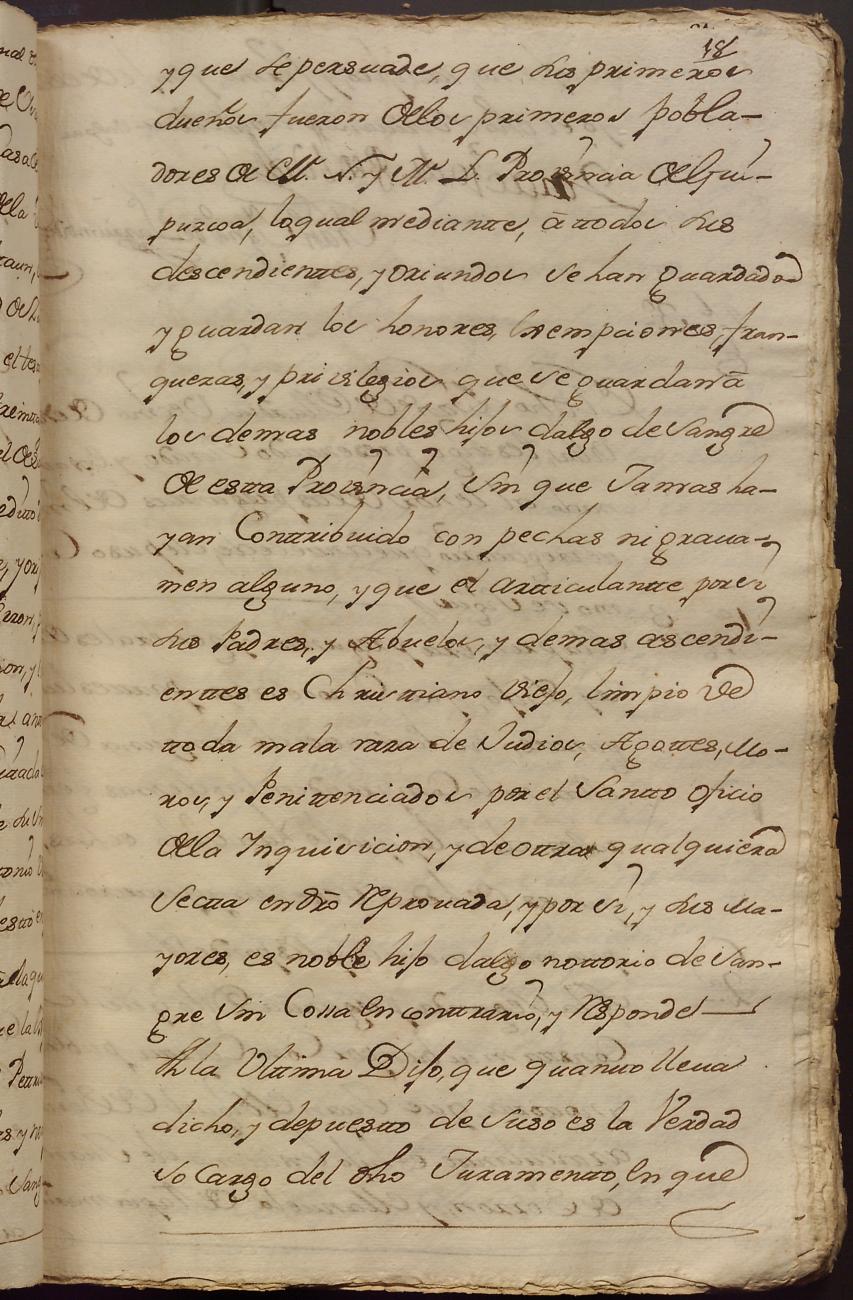 18
y que se persuade, que sus primeros
dueños fueron de los primeros pobla-
dores de M. N. y M. L. Provincia de Guí-
puzcoa, lo qual mediante, â todos sus
descendientes, y oriundos se han guardado
y guardan los honores, Exempciones, fran-
quezas, y privilegios que se guardan â
los demas nobles hijos dalgo de Sangre
de esta Provincia, Sin que Jamas ha-
yan Contribuido con pechas ni grava-
men alguno, y que el articulante por sí
sus Padres, y Abuelos, y demas ascendi-
entes es Christiano Viejo, limpio de
toda mala raza de Judios, Agotes, Mo-
ros, y Penitenciados por el Santo oficio
de la Inquisicion, y de otra qualquiera
Secta en dro Reprovada, y por Sí, y sus Ma-
yores, es noble hijo dalgo notorio de San-
gre Sin Cossa En contrario, y Responde
A la Ultima Dijo, que quanto lleva
dicho, y depuesto de Suso es la Verdad
So Cargo del dho Juramento, En que